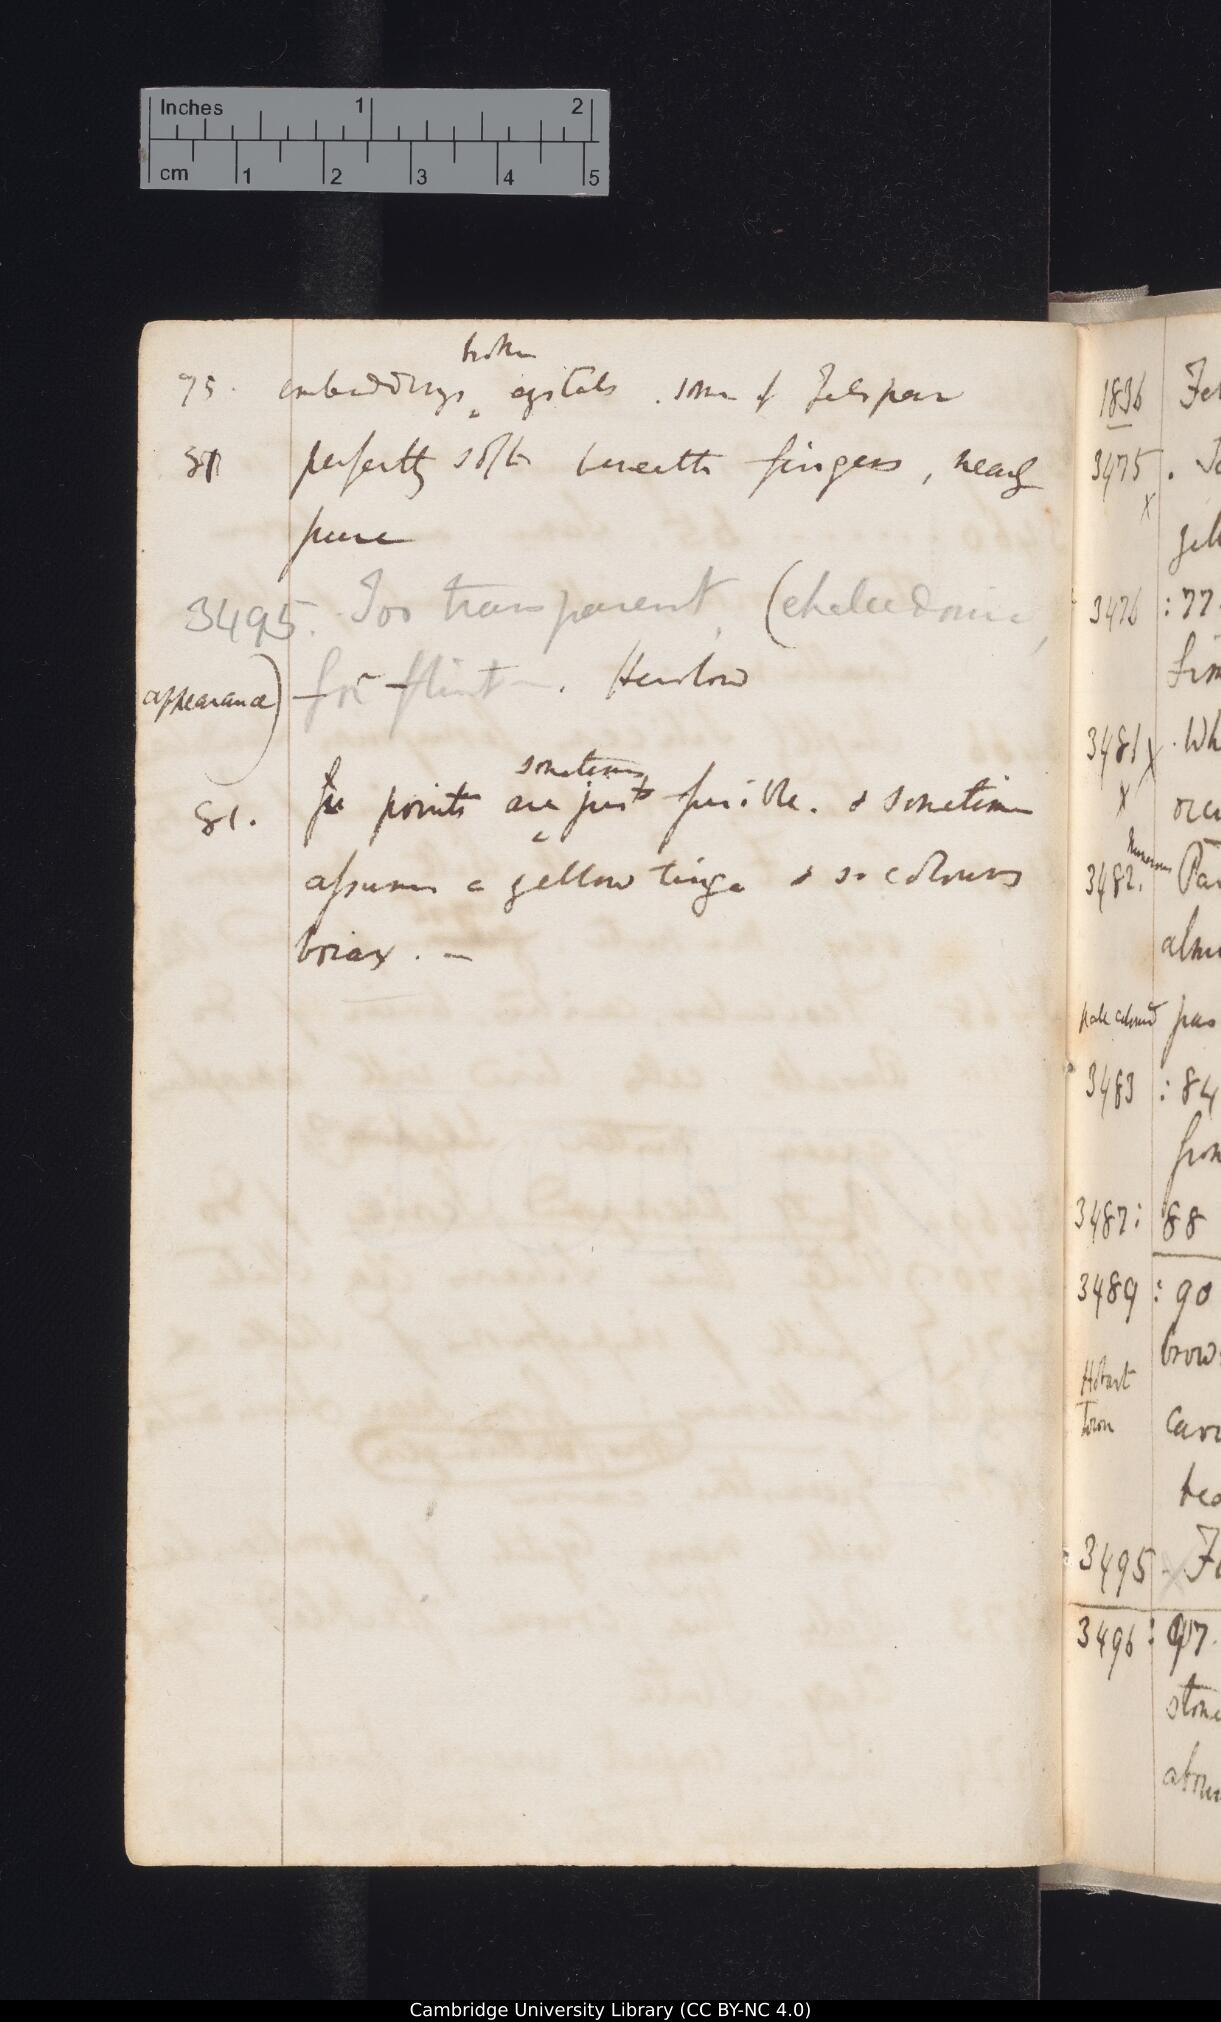 Inches 1 2
cm 1 2 3 4 5
broken
75. embedding, crystals. some of Felspar
81 perfectly soft beneath fingers, nearly
pure
3495. Too transparent, (chalcedonic,
appearance) for flint. Henslow
sometimes
81. Fine points are just fusible. & sometimes
assumes a yellow tinge & so colours
borax. —
1836
3475.
X
3476 : 77.
3481 X. Wh
X
3482. Numerous Par
almo
pale coloured pas
3483 : 84
from
3487: 88
3489 : 90
brow
Hobart
Town
3495
3496 : 97.
stone
Cambridge University Library (CC BY-NC 4.0)